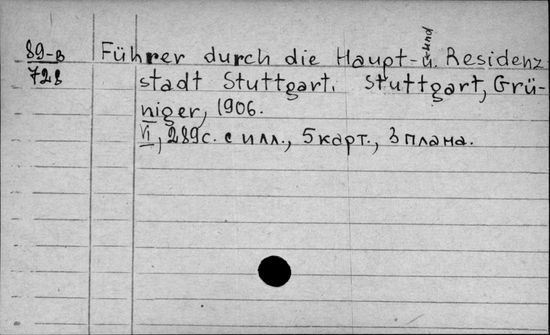 89-в
728
Führer durch die Haupt- u. Residenz-
stadt Stuttgart. Stuttgart, Grü-
niger, 1906.
VI, 289с. с илл., 5 карт., 3 плана.